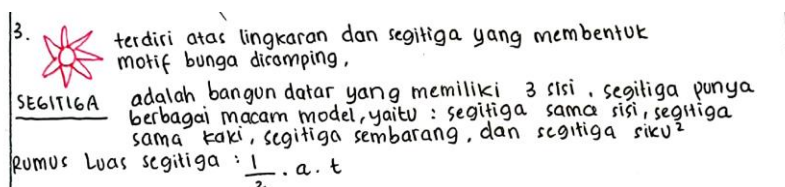 3. terdiri atas lingkaran dan segitiga yang membentuk
motif bunga disamping,
SEGITIGA adalah bangun datar yang memiliki 3 sisi. segitiga punya
berbagai macam model, yaitu : segitiga sama sisi, segitiga
sama kaki, segitiga sembarang, dan segitiga siku²
Rumus Luas segitiga : 1/2 . a. t